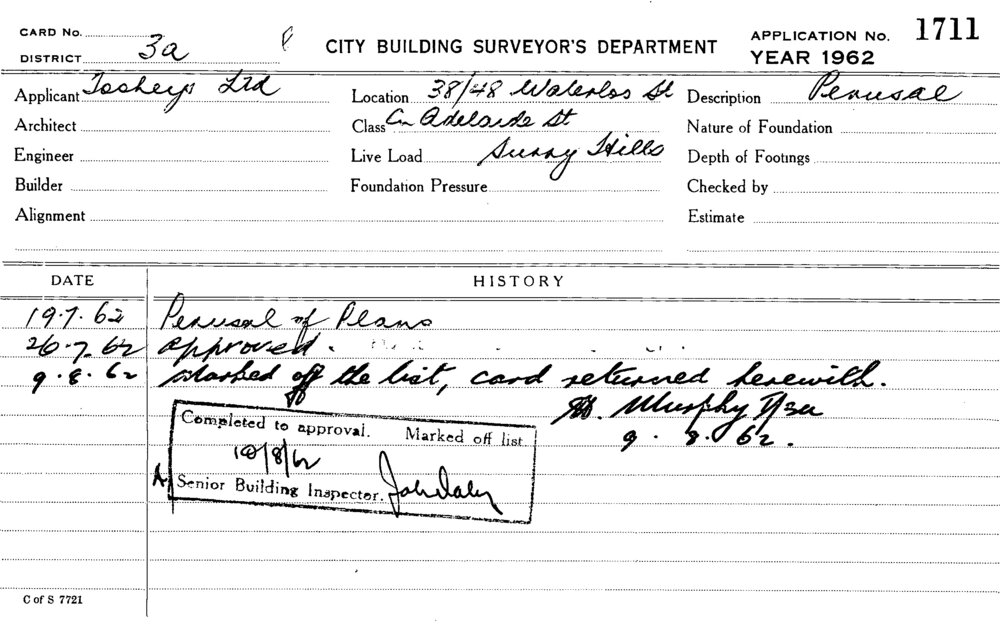 CARD No.
DISTRICT 3a
CITY BUILDING SURVEYOR'S DEPARTMENT
APPLICATION No. 1711
YEAR 1962
Applicant Tooheys Ltd
Location 38/48 Waterloo St
Description Perusal
Architect
Class Cn Adelaide St
Nature of Foundation
Engineer
Live Load Surry Hills
Depth of Footings
Builder
Foundation Pressure
Checked by
Alignment
Estimate
DATE HISTORY
19.7.62 Perusal of Plans
26-7-62 approved.
9.8.62 Marked off the list, card returned herewith.
Murphy
9.8.62.
Completed to approval. Marked off list
10/8/62
Senior Building Inspector.
C of S 7721